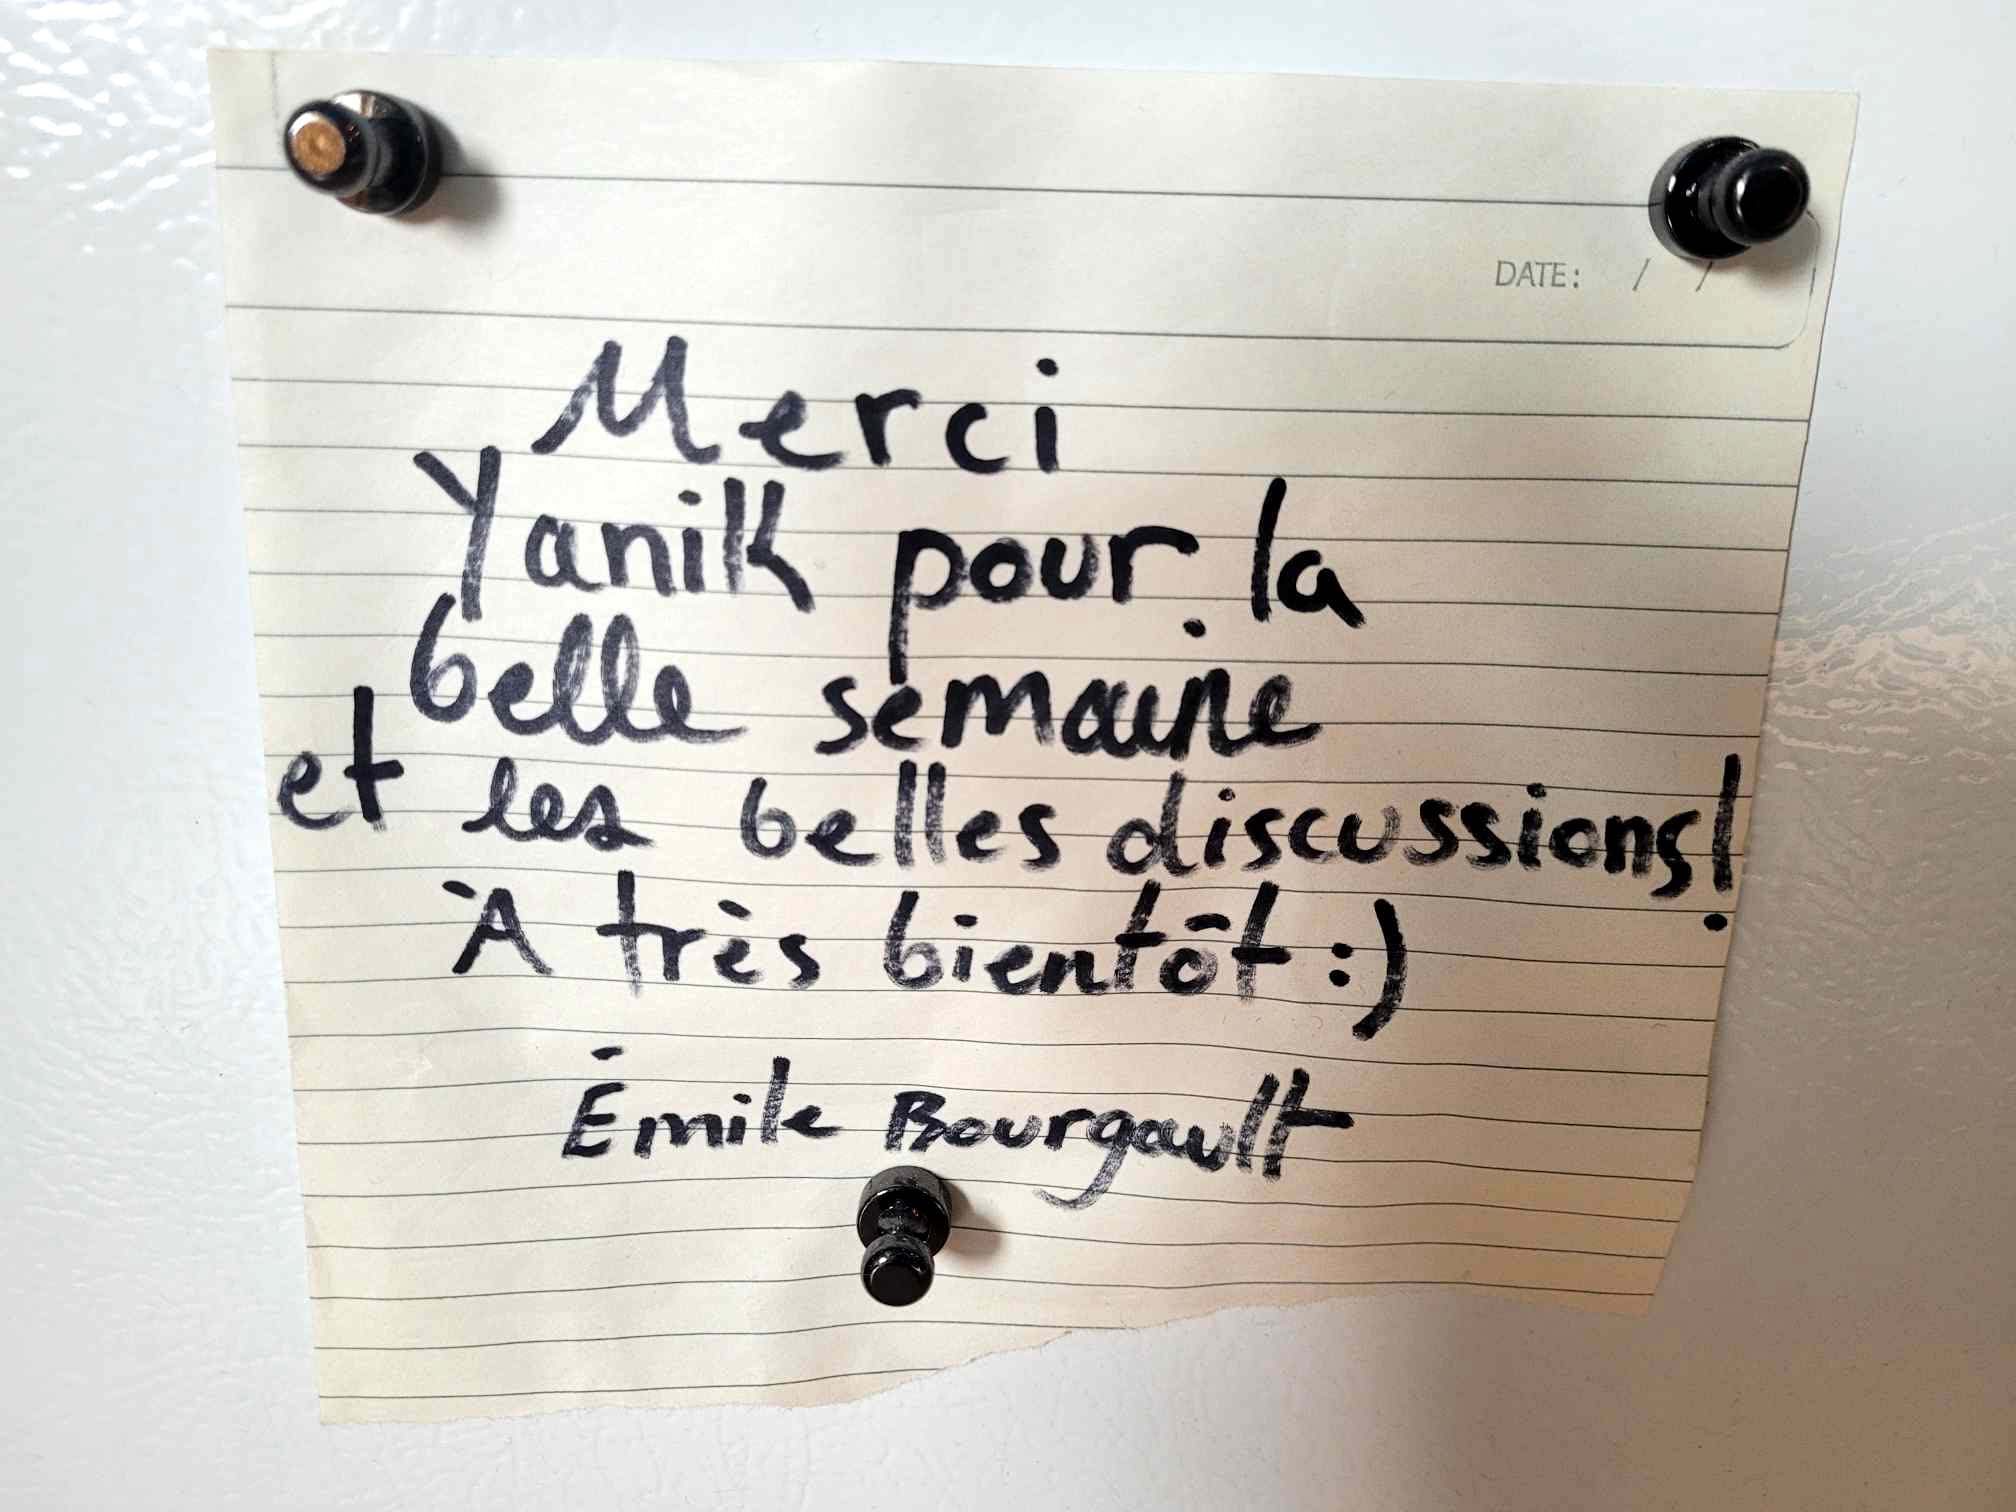 DATE: / /
Merci
Yanik pour la
belle semaine
et les belles discussions!
À très bientôt :)
Émile Bourgault